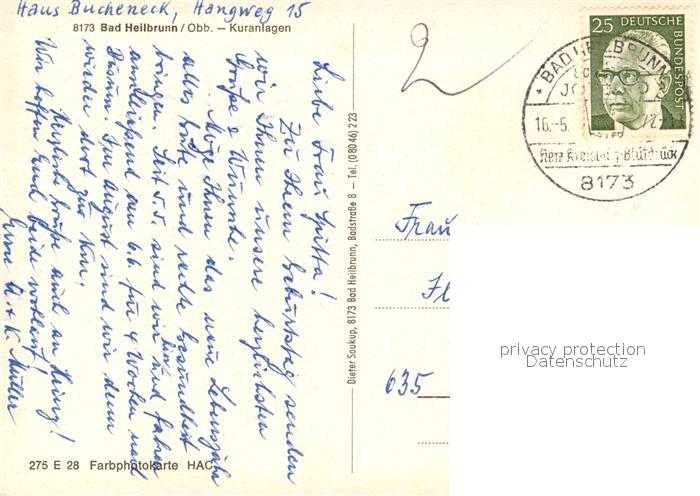 Haus Bucheneck, Hangweg 15
8173 Bad Heilbrunn / Obb. – Kuranlagen
Liebe Frau Spitta!
Zu Ihrem Geburtstag senden
wir Ihnen unsere herzlichsten
Grüße & Wünsche.
Möge Ihnen das neue Lebensjahr
alles Gute und recht Gesundheit
bringen. Seit 5.5. sind wir hier und fahren
anschließend am 6.6. für 4 Wochen nach
Büsum. Im August sind wir dann
wieder dort zur Kur.
Herzliche Grüße auch an
Wir hoffen Sind beide wohlauf!
Ihre & K. Müller
275 E 28 Farbphotokarte HAC
Dieter Soukup, 8173 Bad Heilbrunn, Badstraße 8 – Tel. (0 80 46) 2 23
2
25 DEUTSCHE
BUNDESPOST
BAD HEILBRUNN
16.-5.
Herz Kreislauf Blutdruck
8173
Frau
Fl
635
privacy protection
Datenschutz